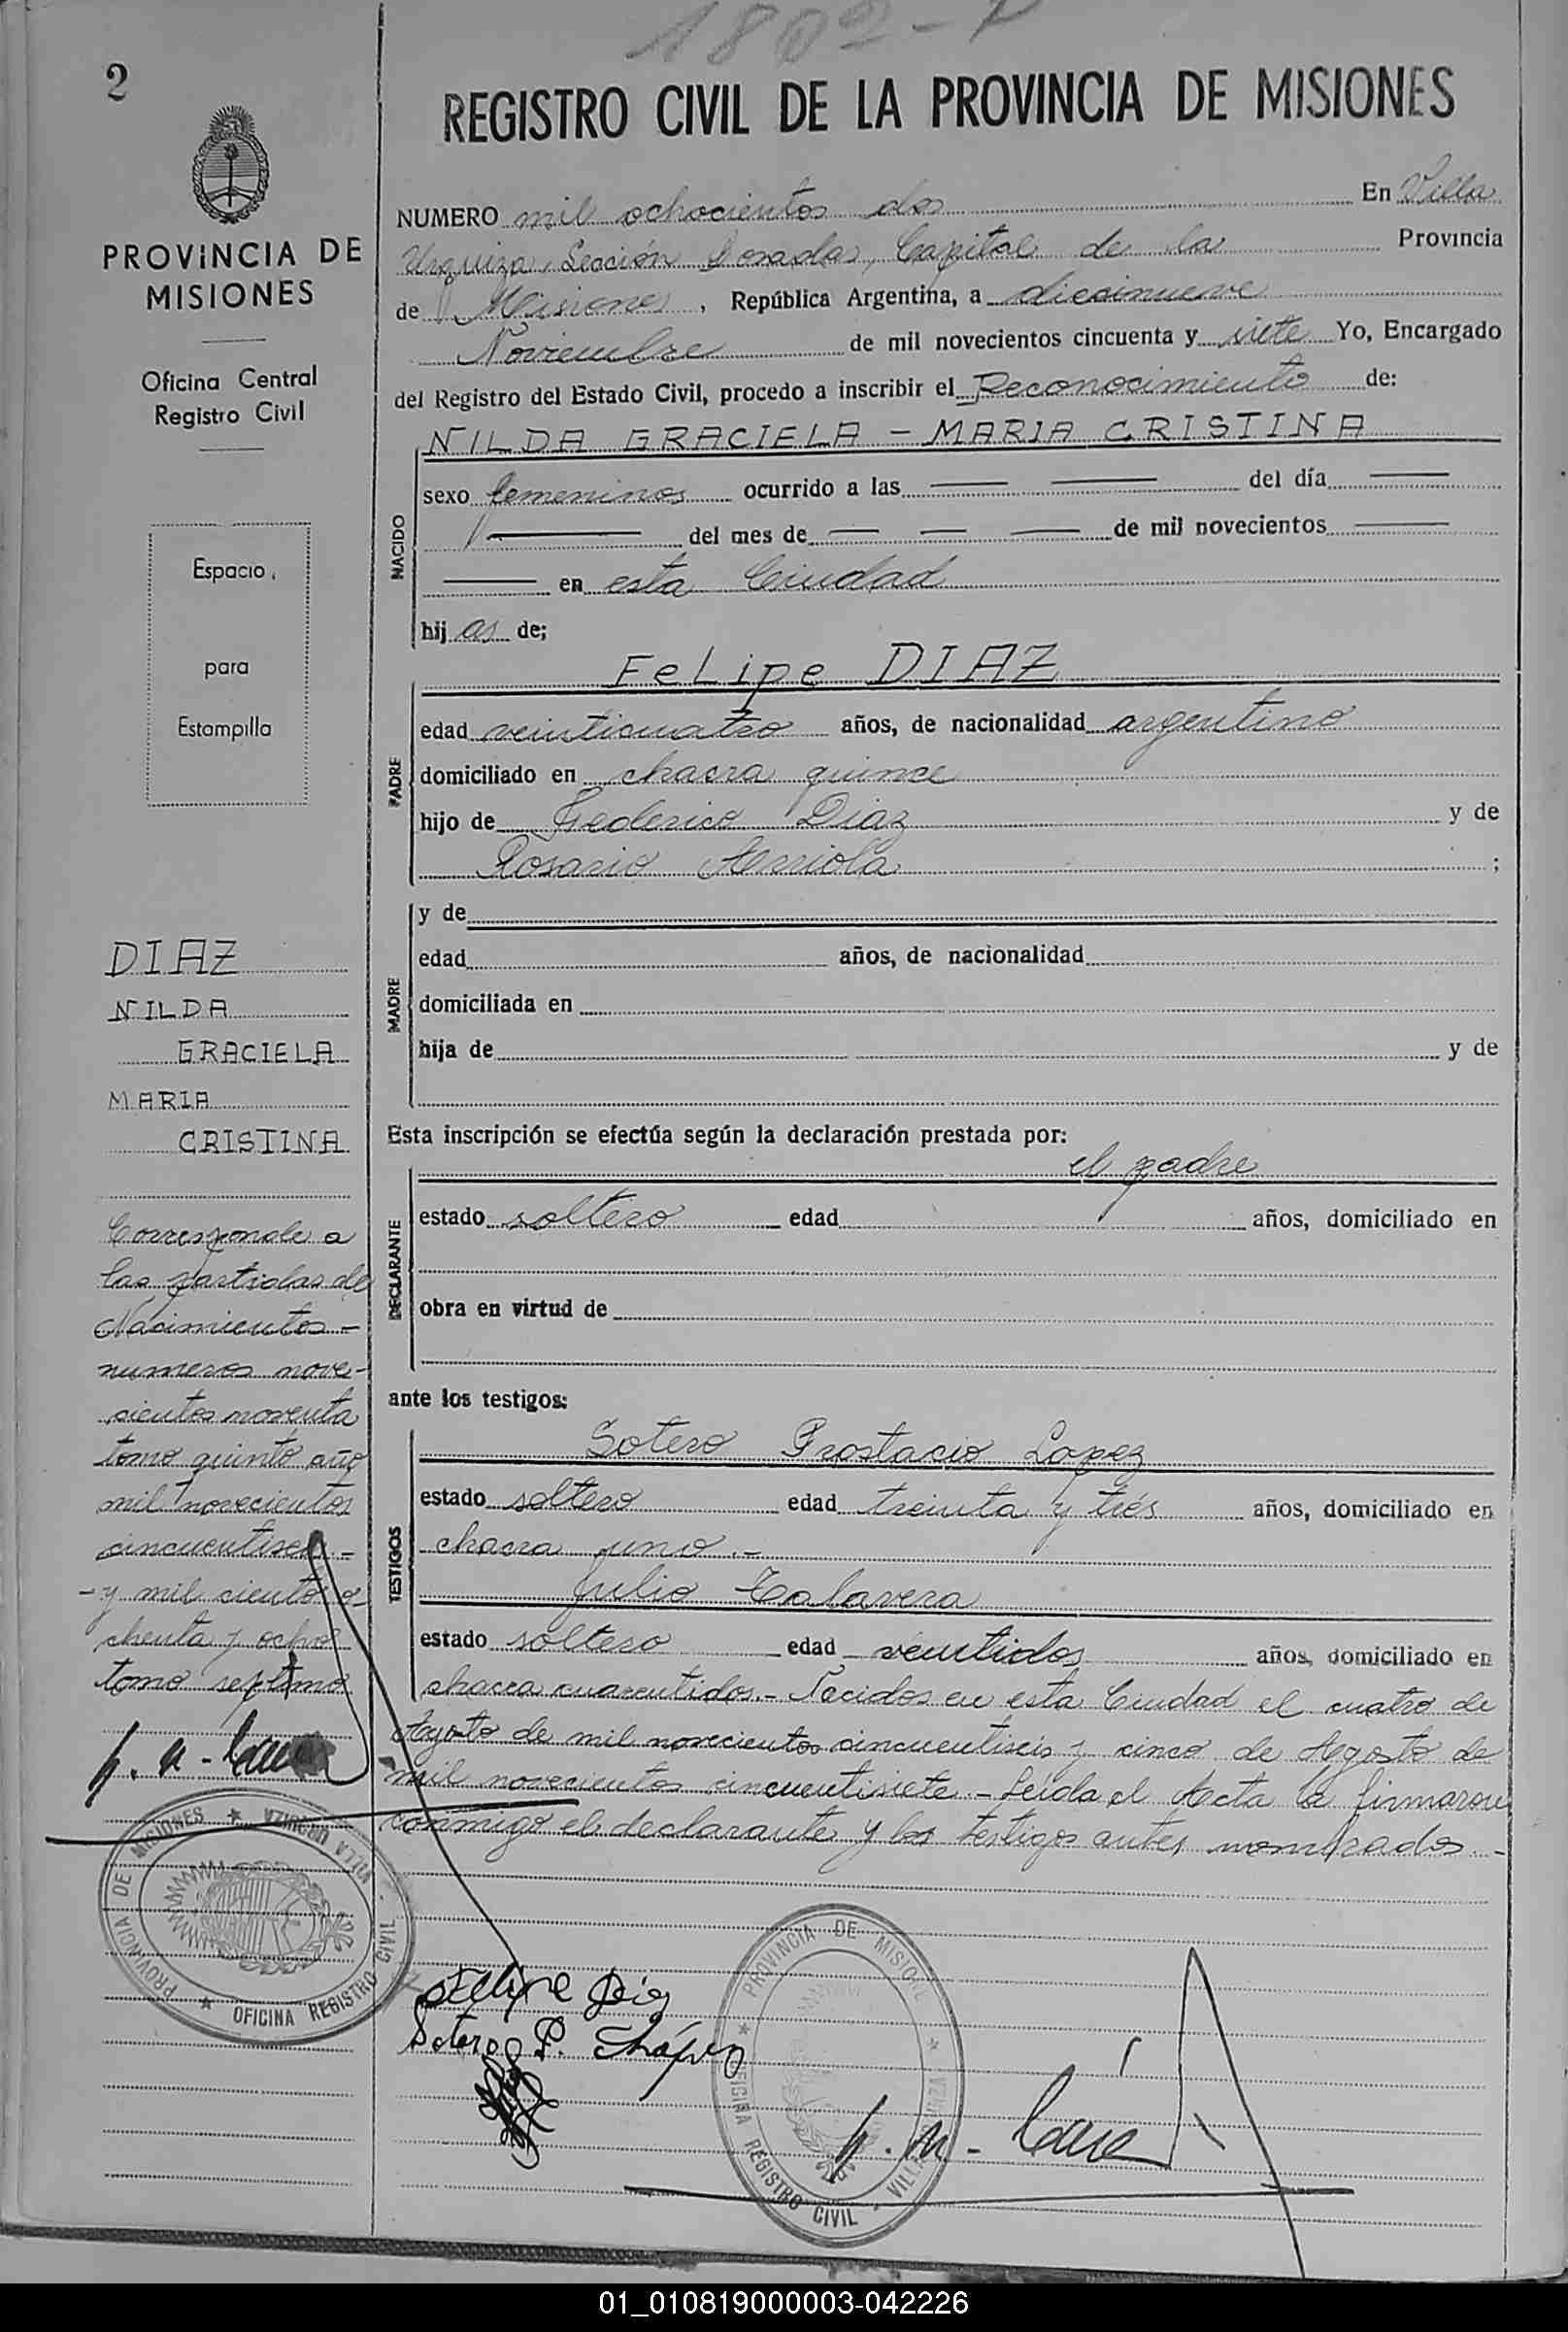 1802-
2
REGISTRO CIVIL DE LA PROVINCIA DE MISIONES
PROVINCIA DE
MISIONES
Oficina Central
Registro Civil
Espacio
para
Estampilla
NUMERO mil ochocientos dos En Villa
Urquiza, Sección Posadas, Capital de la Provincia
de Misiones, República Argentina, a diecinueve
Noviembre de mil novecientos cincuenta y siete Yo, Encargado
del Registro del Estado Civil, procedo a inscribir el Reconocimiento de:
NILDA GRACIELA - MARIA CRISTINA
NACIDO
sexo femeninos ocurrido a las — — del día —
— del mes de — — — de mil novecientos —
— en esta Ciudad
hij as de;
FeLipe DIAZ
PADRE
edad veinticuatro años, de nacionalidad argentino
domiciliado en chacra quince
hijo de Federico Diaz y de
Rosario Arriola ;
MADRE
y de
edad años, de nacionalidad
domiciliada en
hija de y de
Esta inscripción se efectúa según la declaración prestada por:
el padre
DECLARANTE
estado soltero edad años, domiciliado en
obra en virtud de
ante los testigos:
TESTIGOS
Sotero Prostacio Lopez
estado soltero edad treinta y trés años, domiciliado en
chacra uno.-
Julio Talavera
estado soltero edad veintidos años, domiciliado en
chacra cuarentidos.- Nacidos en esta Ciudad el cuatro de
Agosto de mil novecientos cincuentiseis y cinco de Agosto de
mil novecientos cincuentisiete - Leida el Acta la firmaron
conmigo el declarante y los testigos antes nombrados.-
DIAZ
NILDA
GRACIELA
MARIA
CRISTINA
Corresponde a
las partidas de
Nacimientos -
numeros nove-
cientos noventa
tomo quinto año
mil novecientos
cincuentiseis -
- y mil ciento o-
chenta y ocho
tomo septimo
PROVINCIA DE MISIONES ★ VILLA URQUIZA
★ OFICINA REGISTRO CIVIL
Felipe Diaz
Sotero P. López
★ PROVINCIA DE MISIONES ★
OFICINA REGISTRO CIVIL - VILLA URQUIZA
01_010819000003-042226